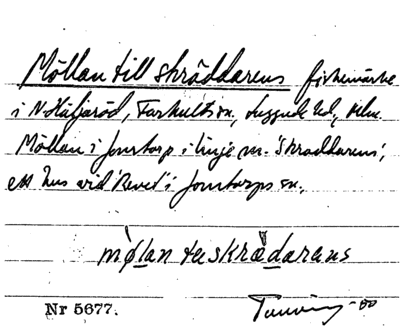 Möllan till skräddarens fiskemärke
i N. Häljaröd, Farhults sn., Luggude hd., Mlm.
Möllan i Jonstorp i linje m. 'Skräddarens',
ett hus vid 'Revet' i Jonstorps sn.
mø̀lan te skræ̀darans
Nr 5677. -00